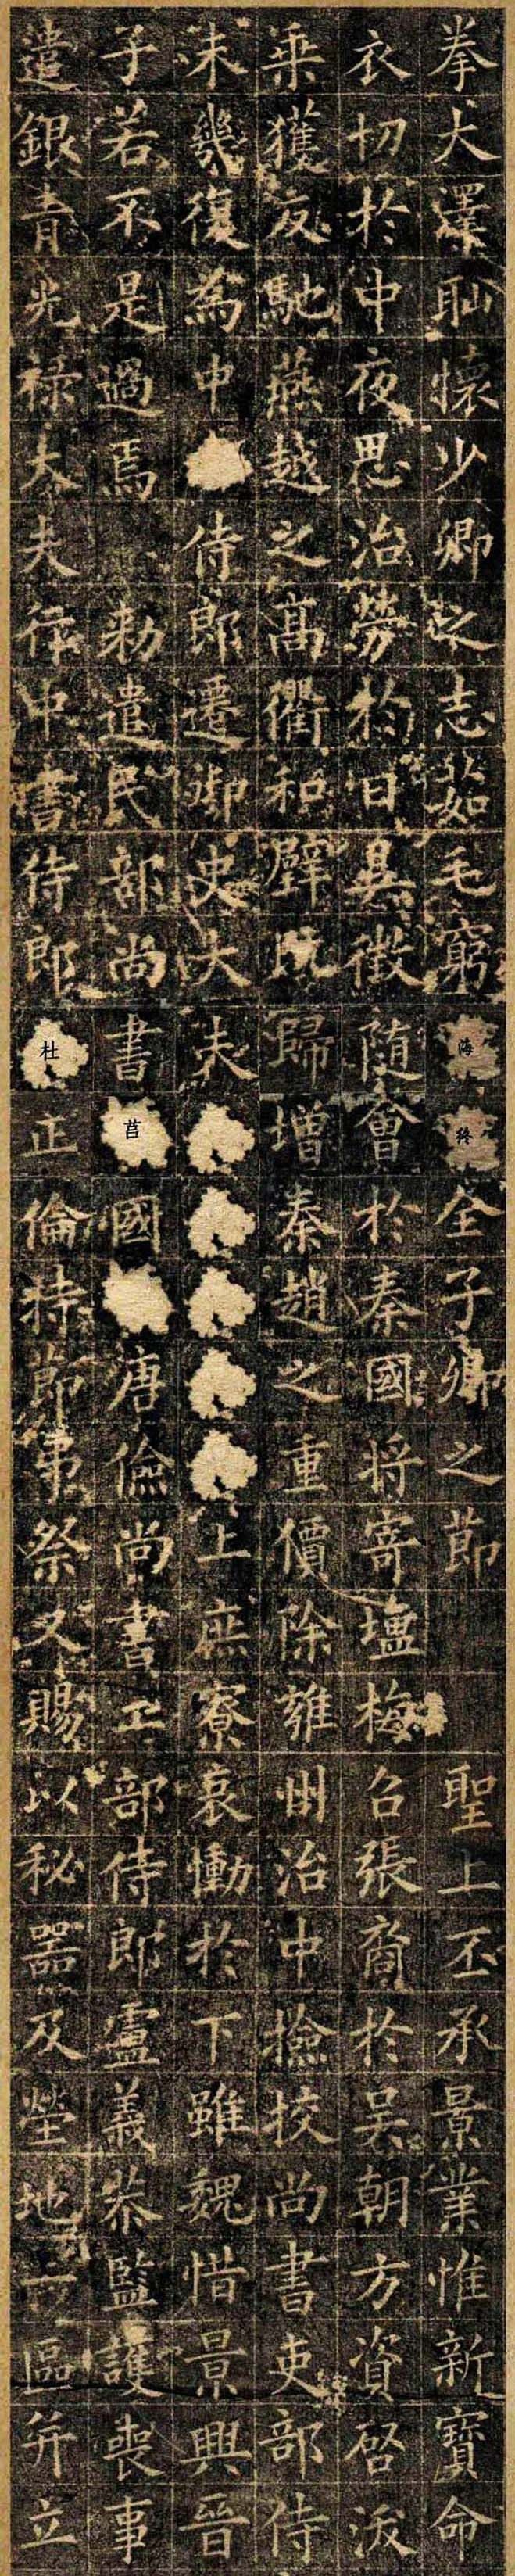 拳大澤恥懷少卿之志茹毛窮海終全子卿之節 聖上丕承景業惟新寶命
衣切於中夜思治勞於日昃徵隨會於秦國將寄壃梅召張裔於吳朝方資啓沃
乘獲反馳燕越之高衢和璧既歸增秦趙之重價除雍州治中撿挍尚書吏部侍
未幾復為中侍郎遷御史大夫上庶寮哀慟於下雖魏惜景興晉
子若不是過焉 勑遣民部尚書莒國唐儉尚書工部侍郎盧義恭監護喪事
遣銀青光祿大夫行中書侍郎杜正倫持節弔祭又賜以秘器及塋地一區并立